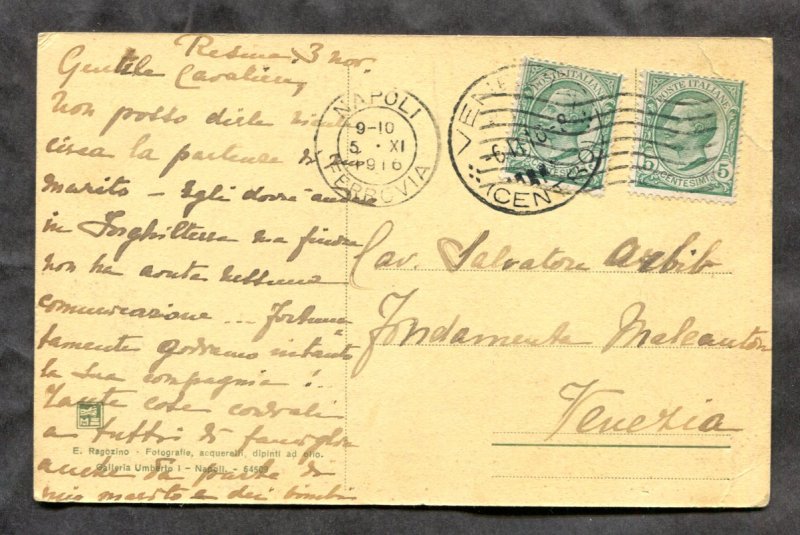 Resina, 3 nov.
Gentile Cavaliere,
Non posso dirle niente
circa la partenza di mio
marito – Egli dovrà andare
in Inghilterra ma finora
non ha avuto nessuna
comunicazione ... Fortuna
tamente godremo intanto
la sua compagnia !
Tante cose cordiali
a tutti di famiglia
anche da parte di
mio marito e dei bimbi
NAPOLI
9-10
5 · XI
1916
FERROVIA
VENEZIA
6.XI.16-8
CENTRO
POSTE ITALIANE
CENTESIMI
POSTE ITALIANE
5 CENTESIMI 5
Cav. Salvatore Arbib
Fondamenta Malcanton
Venezia
E. Ragozino - Fotografie, acquerelli, dipinti ad olio.
Galleria Umberto I - Napoli. - 64509